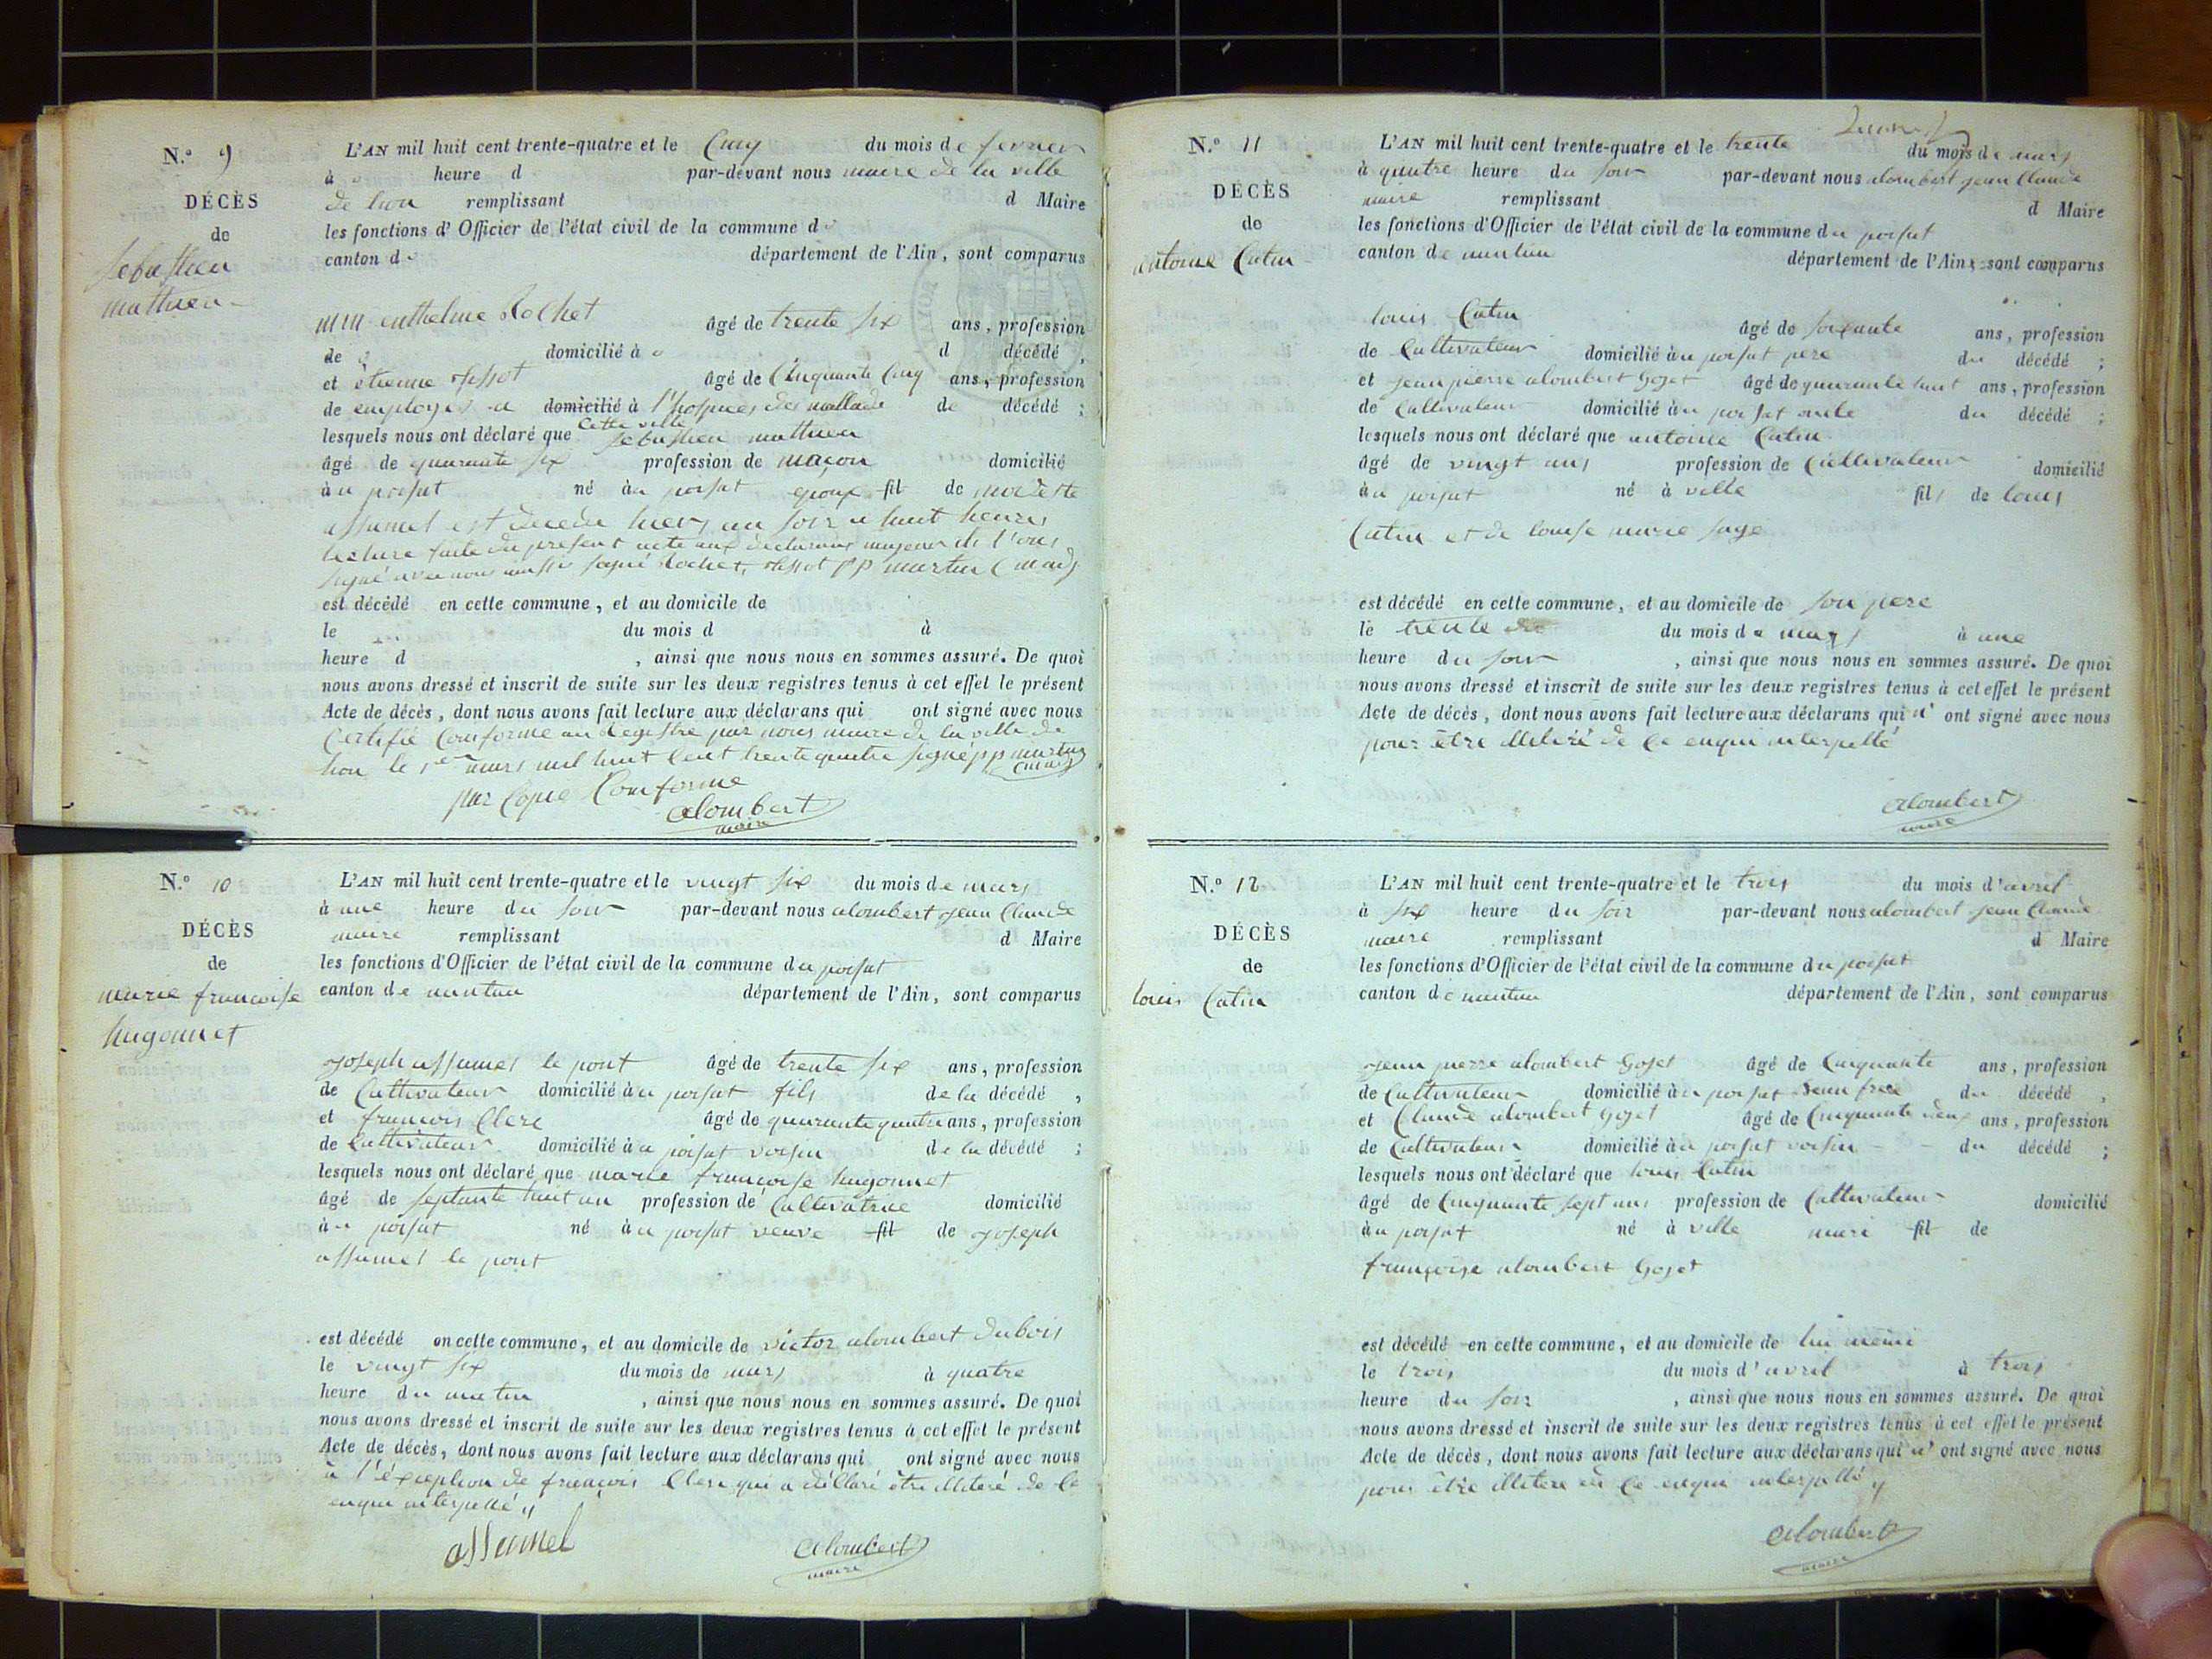 N.º 9
DÉCÈS
de
Sebastien
mathieu
L'AN mil huit cent trente-quatre et le Cinq du mois de fevrier
à heure d par-devant nous maire de la ville
de lion remplissant d Maire
les fonctions d'Officier de l'état civil de la commune d
canton d département de l'Ain, sont comparus
anthelme Rochet âgé de trente six ans, profession
de domicilié à d décédé,
et étienne âgé de Cinquante Cinq ans, profession
de employés a domicilié à l'hospices des mallade de décédé;
cette ville
lesquels nous ont déclaré que Sebastien mathieu
âgé de quarante six profession de maçon domicilié
àu poisat né àu poisat epoux fil de modeste
assumel est decedé hiers au soir a huit heures
lecture faite du present acte aux declarants majeurs ils l'ont
signé avec nous aussi signé Rochet, pp martin (maire)
est décédé en cette commune, et au domicile de
le du mois d à
heure d , ainsi que nous nous en sommes assuré. De quoi
nous avons dressé et inscrit de suite sur les deux registres tenus à cet effet le présent
Acte de décès, dont nous avons fait lecture aux déclarans qui ont signé avec nous
Certifié Conforme au Registre par nous maire de la ville de
lion le 1er mars mil huit Cent trente quatre signé pp martin
(maire)
par Copie Conforme
alombert
maire
N.º 10
DÉCÈS
de
marie francoise
hugonnet
L'AN mil huit cent trente-quatre et le vingt six du mois de mars
à une heure du soir par-devant nous alombert jean Claude
maire remplissant d Maire
les fonctions d'Officier de l'état civil de la commune du poisat
canton de nantua département de l'Ain, sont comparus
joseph assumel le pont âgé de trente six ans, profession
de Cultivateur domicilié àu poisat fils de la décédé,
et francois Clerc âgé de quarante quatre ans, profession
de Cultivateur domicilié àu poisat voisin de la décédé;
lesquels nous ont déclaré que marie francoise hugonnet
âgé de septante huit an profession de Cultivatrice domicilié
àu poisat né àu poisat veuve fil de joseph
assumel le pont
est décédé en cette commune, et au domicile de victor alombert dubois
le vingt six du mois de mars à quatre
heure du matin , ainsi que nous nous en sommes assuré. De quoi
nous avons dressé et inscrit de suite sur les deux registres tenus à cet effet le présent
Acte de décès, dont nous avons fait lecture aux déclarans qui ont signé avec nous
à l'éxception de francois Clerc qui a déllaré être illiteré de ce
enqui interpellé
assumel
alombert
maire
N.º 11
DÉCÈS
de
antoine Catin
L'AN mil huit cent trente-quatre et le trente du mois de mars
à quatre heure du soir par-devant nous alombert jean Claude
maire remplissant d Maire
les fonctions d'Officier de l'état civil de la commune du poisat
canton de nantua département de l'Ain, sont comparus
louis Catin âgé de soixante ans, profession
de Cultivateur domicilié àu poisat pere du décédé;
et jean pierre alombert Goget âgé de quarante huit ans, profession
de Cultivateur domicilié àu poisat oncle du décédé;
lesquels nous ont déclaré que antoine Catin
âgé de vingt ans profession de Cultivateur domicilié
àu poisat né à ville fils de louis
Catin et de louise marie sage
est décédé en cette commune, et au domicile de son pere
le trente du du mois de mars à une
heure du soir , ainsi que nous nous en sommes assuré. De quoi
nous avons dressé et inscrit de suite sur les deux registres tenus à cet effet le présent
Acte de décès, dont nous avons fait lecture aux déclarans qui n' ont signé avec nous
pour être illiteré de ce enqui interpellé
alombert
maire
N.º 12
DÉCÈS
de
louis Catin
L'AN mil huit cent trente-quatre et le trois du mois d'avril
à six heure du soir par-devant nous alombert jean Claude
maire remplissant d Maire
les fonctions d'Officier de l'état civil de la commune du poisat
canton de nantua département de l'Ain, sont comparus
jean pierre alombert Goget âgé de Cinquante ans, profession
de Cultivateur domicilié àu poisat beau frere du décédé,
et Claude alombert goget âgé de Cinquante deux ans, profession
de Cultivateur domicilié àu poisat voisin du décédé;
lesquels nous ont déclaré que louis Catin
âgé de Cinquante sept ans profession de Cultivateur domicilié
àu poisat né à ville mari fil de
françoise alombert Goget
est décédé en cette commune, et au domicile de lui même
le trois du mois d'avril à trois
heure du soir , ainsi que nous nous en sommes assuré. De quoi
nous avons dressé et inscrit de suite sur les deux registres tenus à cet effet le présent
Acte de décès, dont nous avons fait lecture aux déclarans qui n' ont signé avec nous
pour être illiteré de ce enqui interpellé
alombert
maire